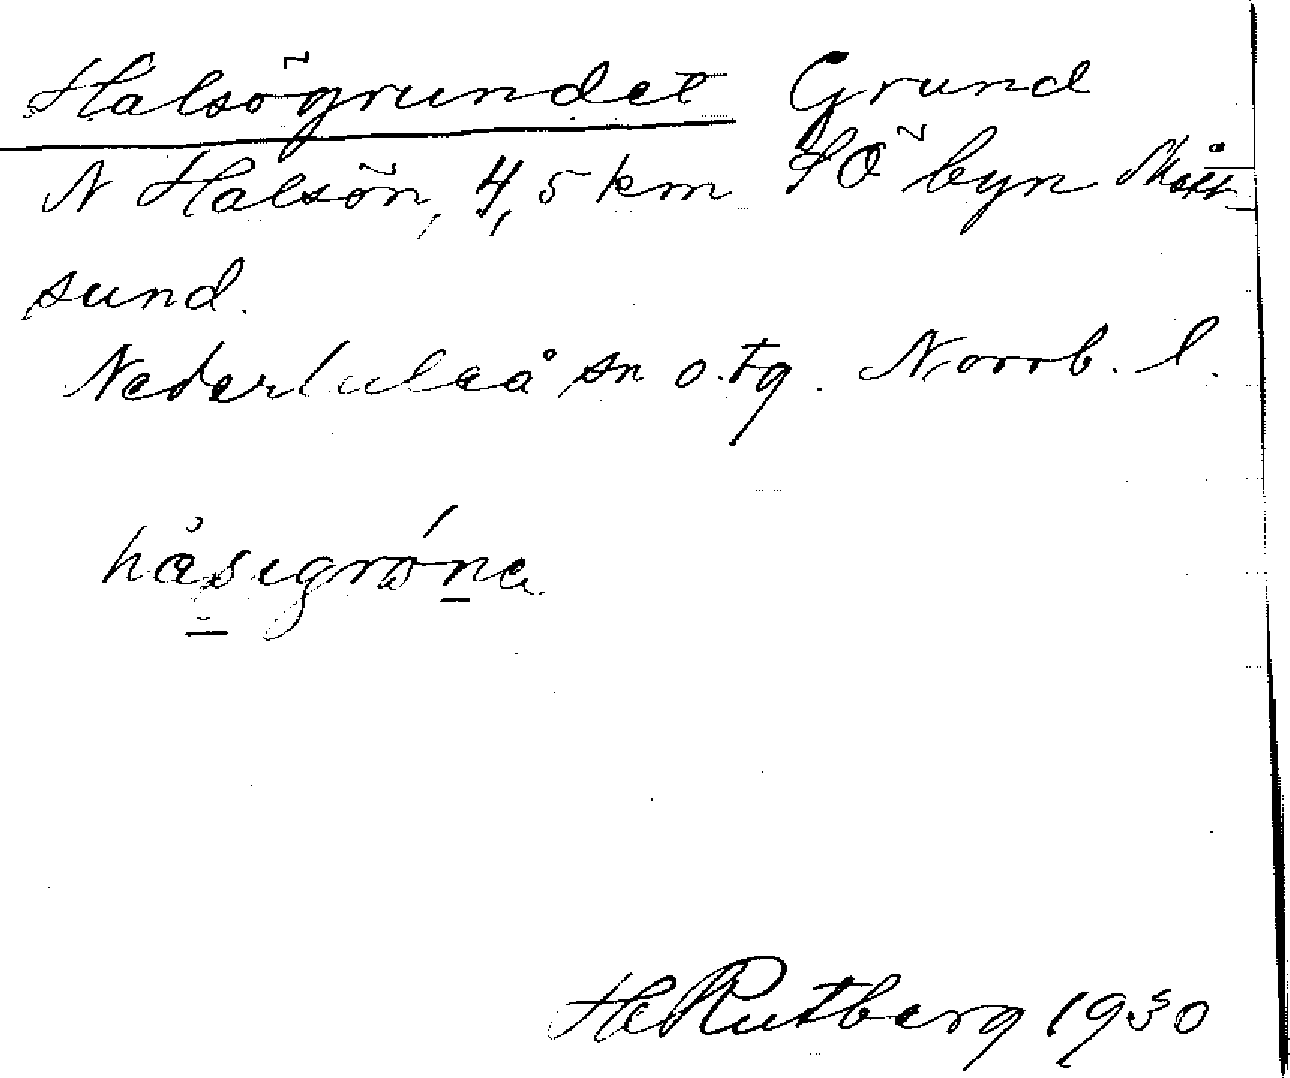 Halsögrundet Grund
N Halsön, 4,5 km SÖ byn Mått-
sund.
Nederluleå sn o. tg. Norrb. l.
håsegrøna
He Rutberg 1930